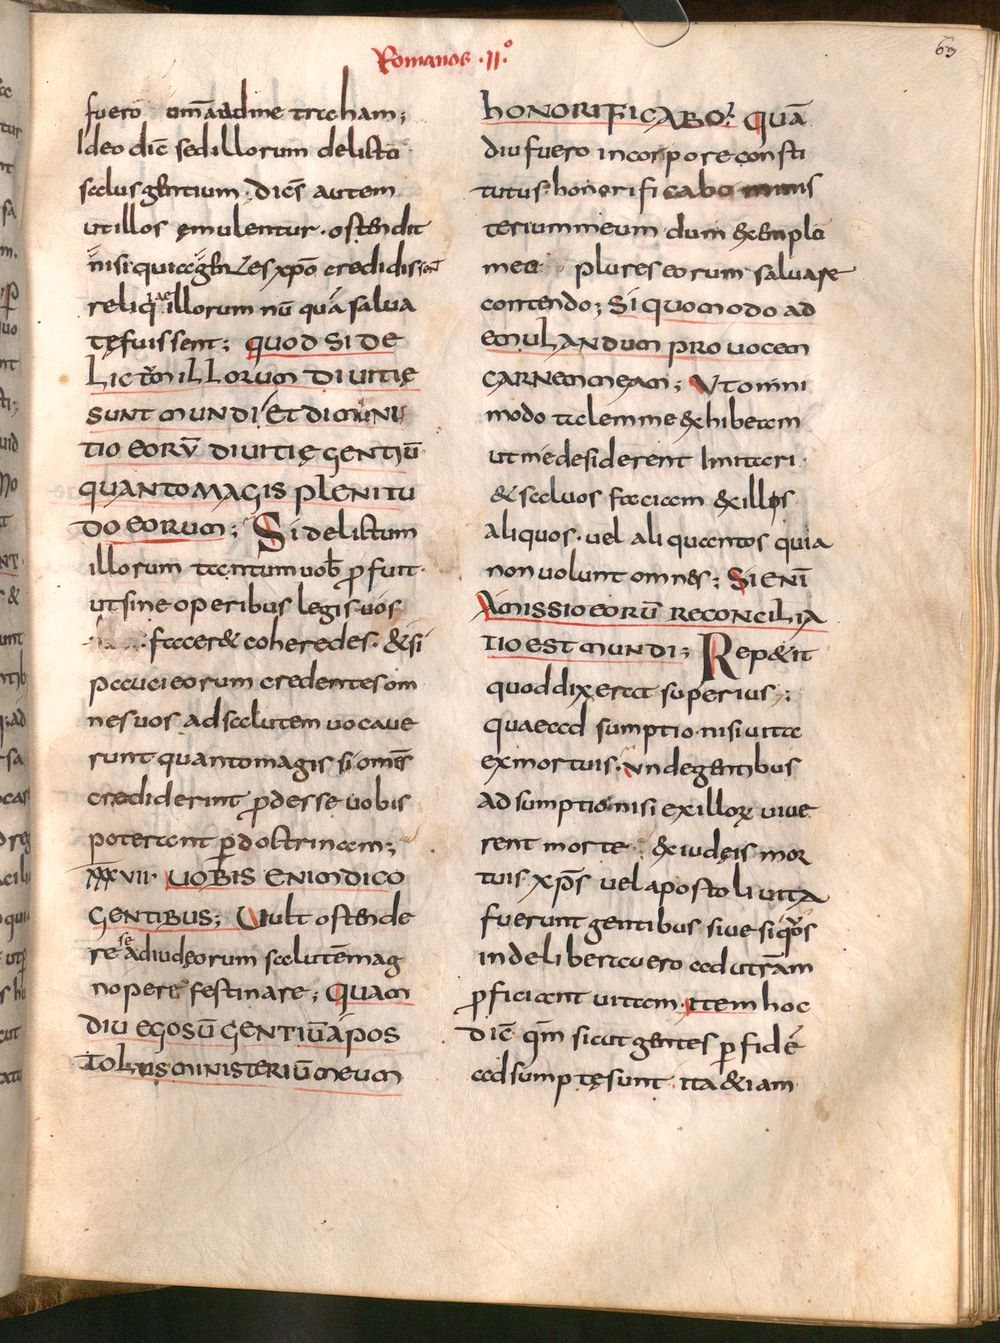 Romanos · II°
63
fuero om̄a ad me traham;
Ideo dic̄ sed illorum delicta
salus gentium · dicēs autem
ut illos ęmulentur · ostendit
nisi quia gentes xp̄o credidissent
reliquiae illorum nū quā salua
tę fuissent; QUOD SI DE
LICTM̄ ILLORUM DIUITIĘ
SUNT MUNDI ET DIMINU
TIO EORŪ DIUITIĘ GENTIŪ
QUANTO MAGIS PLENITU
DO EORUM; Si delictum
illorum tantum uob̄ ꝓfuit·
ut sine operibus legis uos
faceret coheredes · & si
pauci eorum credentes om
nes uos ad salutem uocaue
runt quanto magis si om̄s
crediderint ꝓdesse uobis
poterant ꝑ doctrinam;
XXXVII· UOBIS ENIM DICO
GENTIBUS; Uult ostende
re se ad iudęorum salutēmag
nopere festinare; QUAM
DIU EGO SŪ GENTIŪ APOS
TOLUS MINISTERIŪ MEUM
HONORIFICABO; QUĀ
diu fuero in corpore consti
tutus · honorificabo minis
terium meum dum exemplo
meo plures eorum saluare
contendo; SI QUOMODO AD
EMULANDUM PROUOCEM
CARNEM MEAM; Ut omni
modo talem me exhibeam
ut me desiderent imitari ·
& saluos faciam ex illis
aliquos · uel aliquantos quia
non uolunt omnes; SI ENĪ
AMISSIO EORŪ RECONCILIA
TIO EST MUNDI; Repetit
quod dixerat superius;
quae adsumptio nisi uita
ex mortuis · unde gentibus
adsumptio nisi ex illorꝝ uiue
rent morte & iudęis mor
tuis xp̄s uel apostoli uita
fuerunt gentibus siue si quos
inde libertauero ad utrām
ꝓficiant uitam · Item hoc
dic̄ qm̄ sicut gentes ꝑ fidē
adsumptę sunt · ita & iam